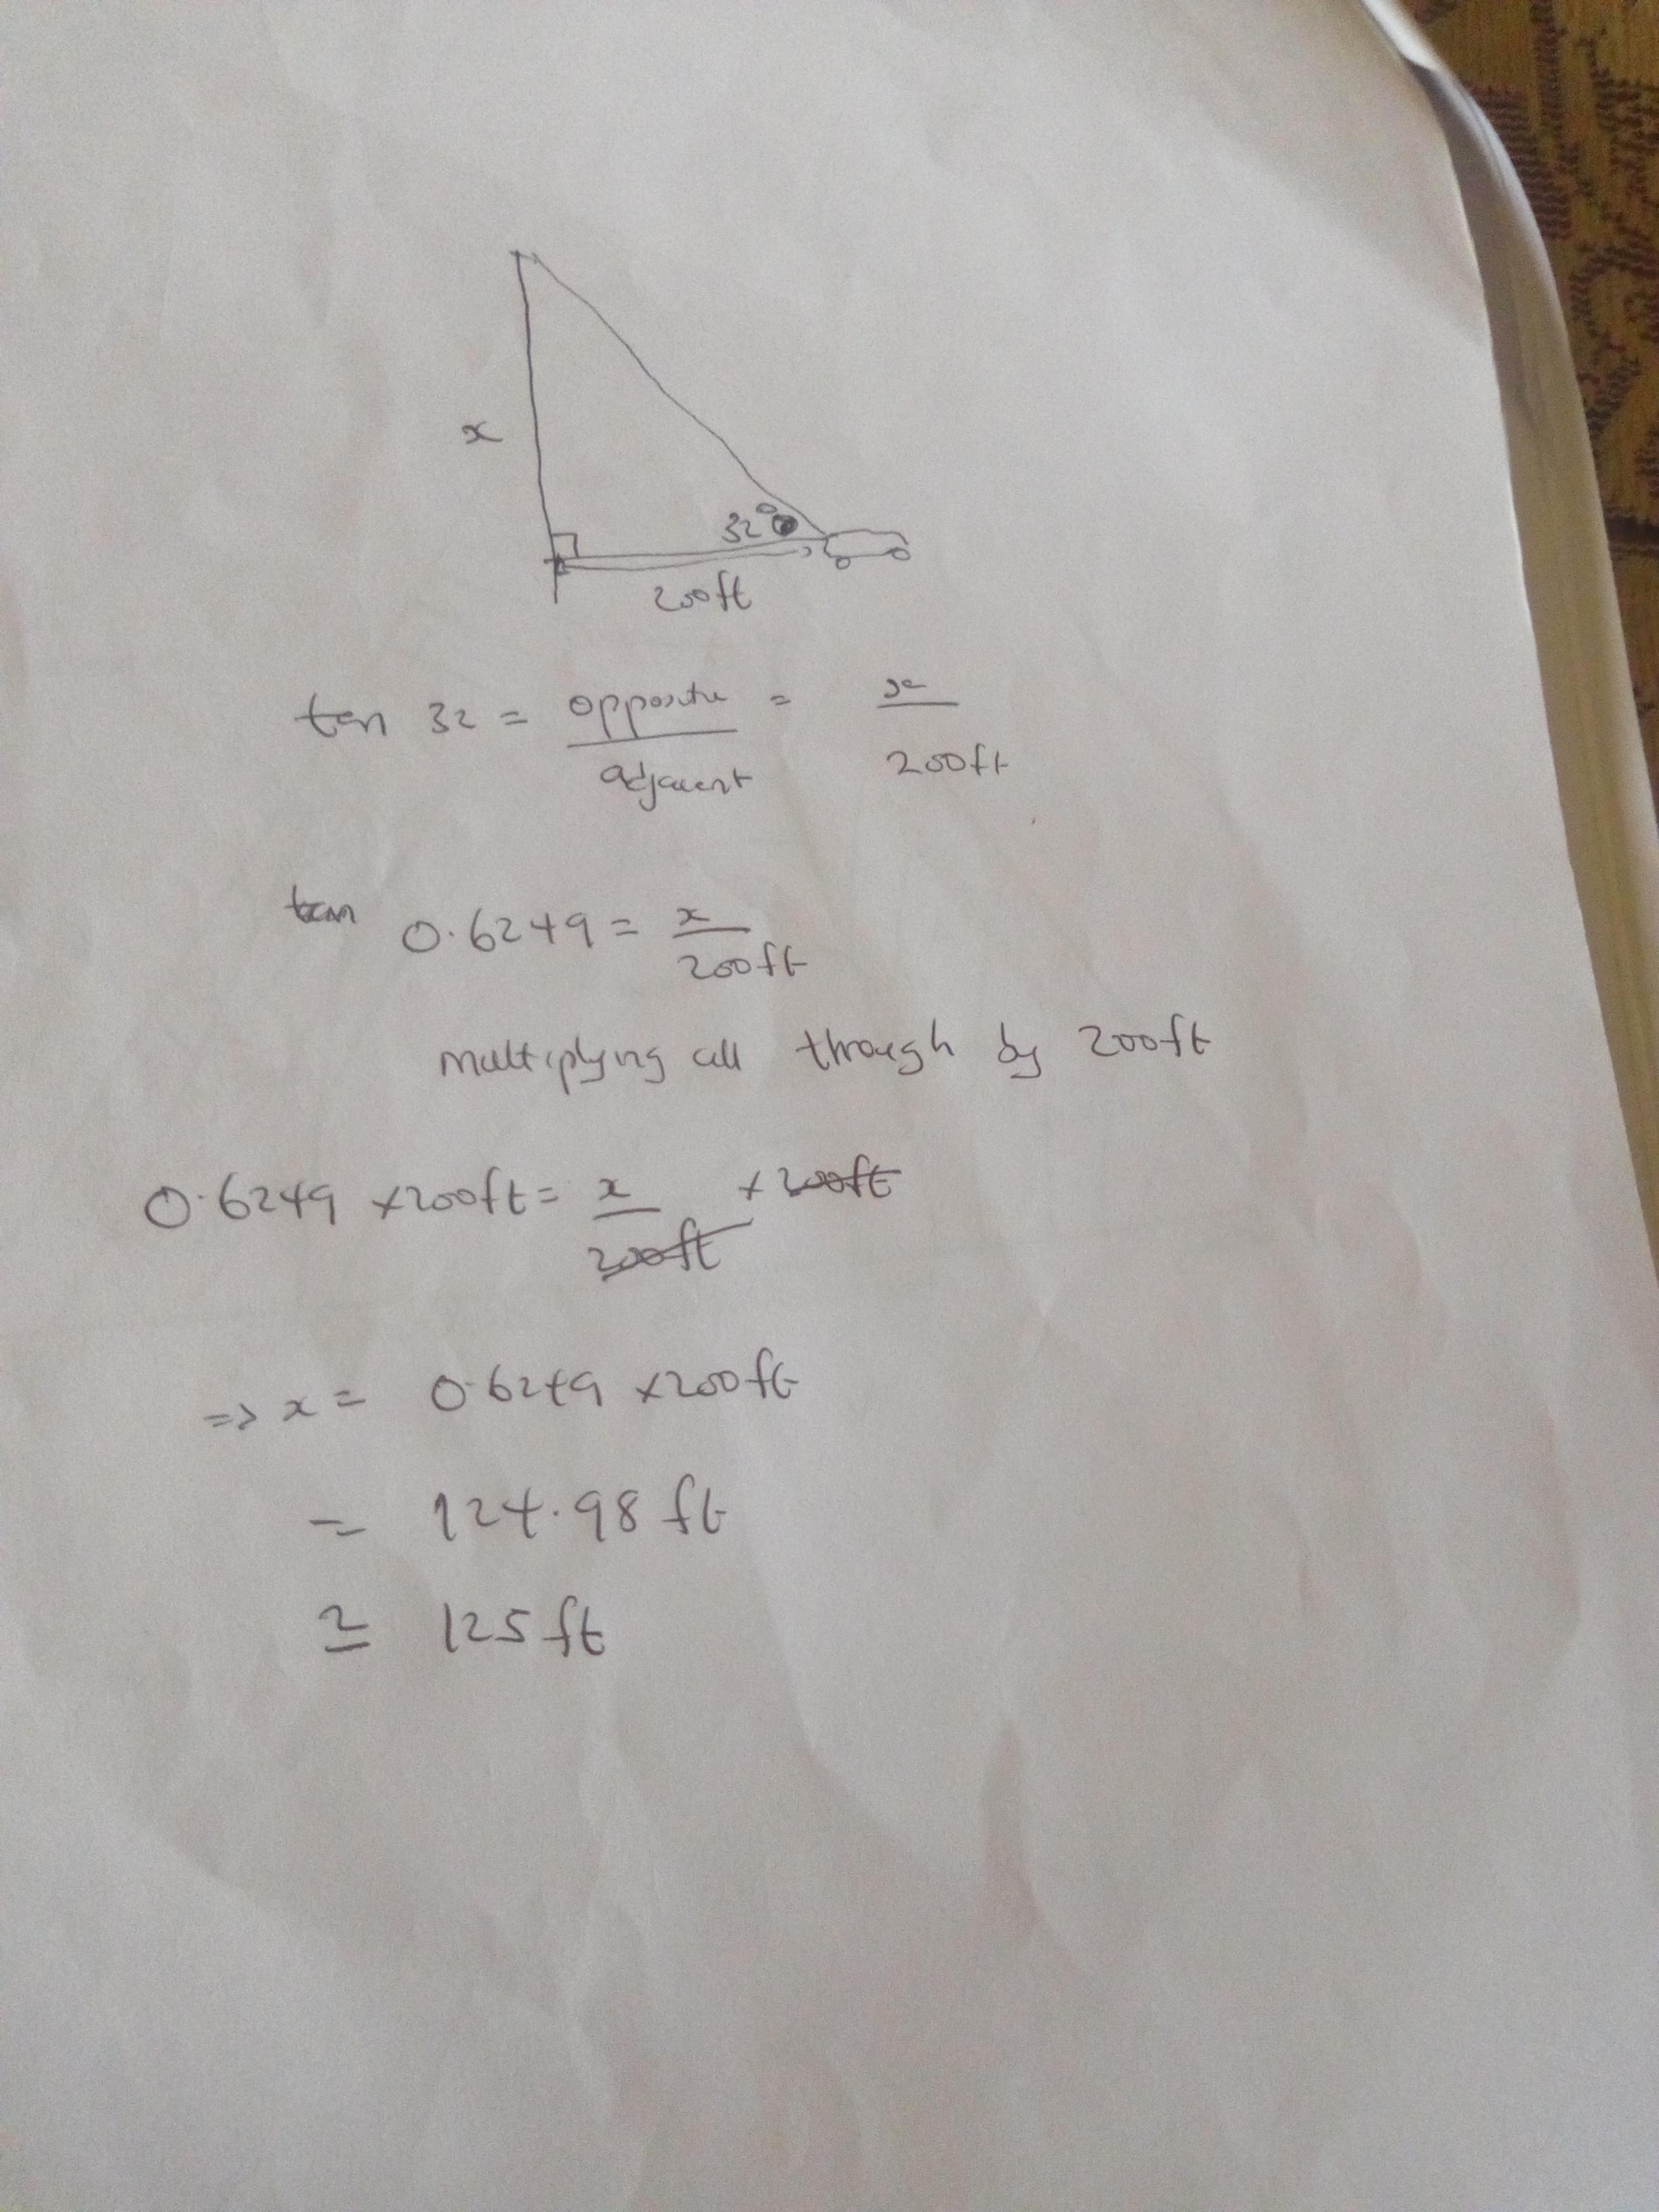 x
32°
200ft
tan 32 = opposite = x
adjacent 200ft
tan 0.6249 = x
200ft
Multiplying all through by 200ft
0.6249 x 200ft = x x 200ft
200ft
=> x = 0.6249 x 200ft
= 124.98 ft
≃ 125 ft